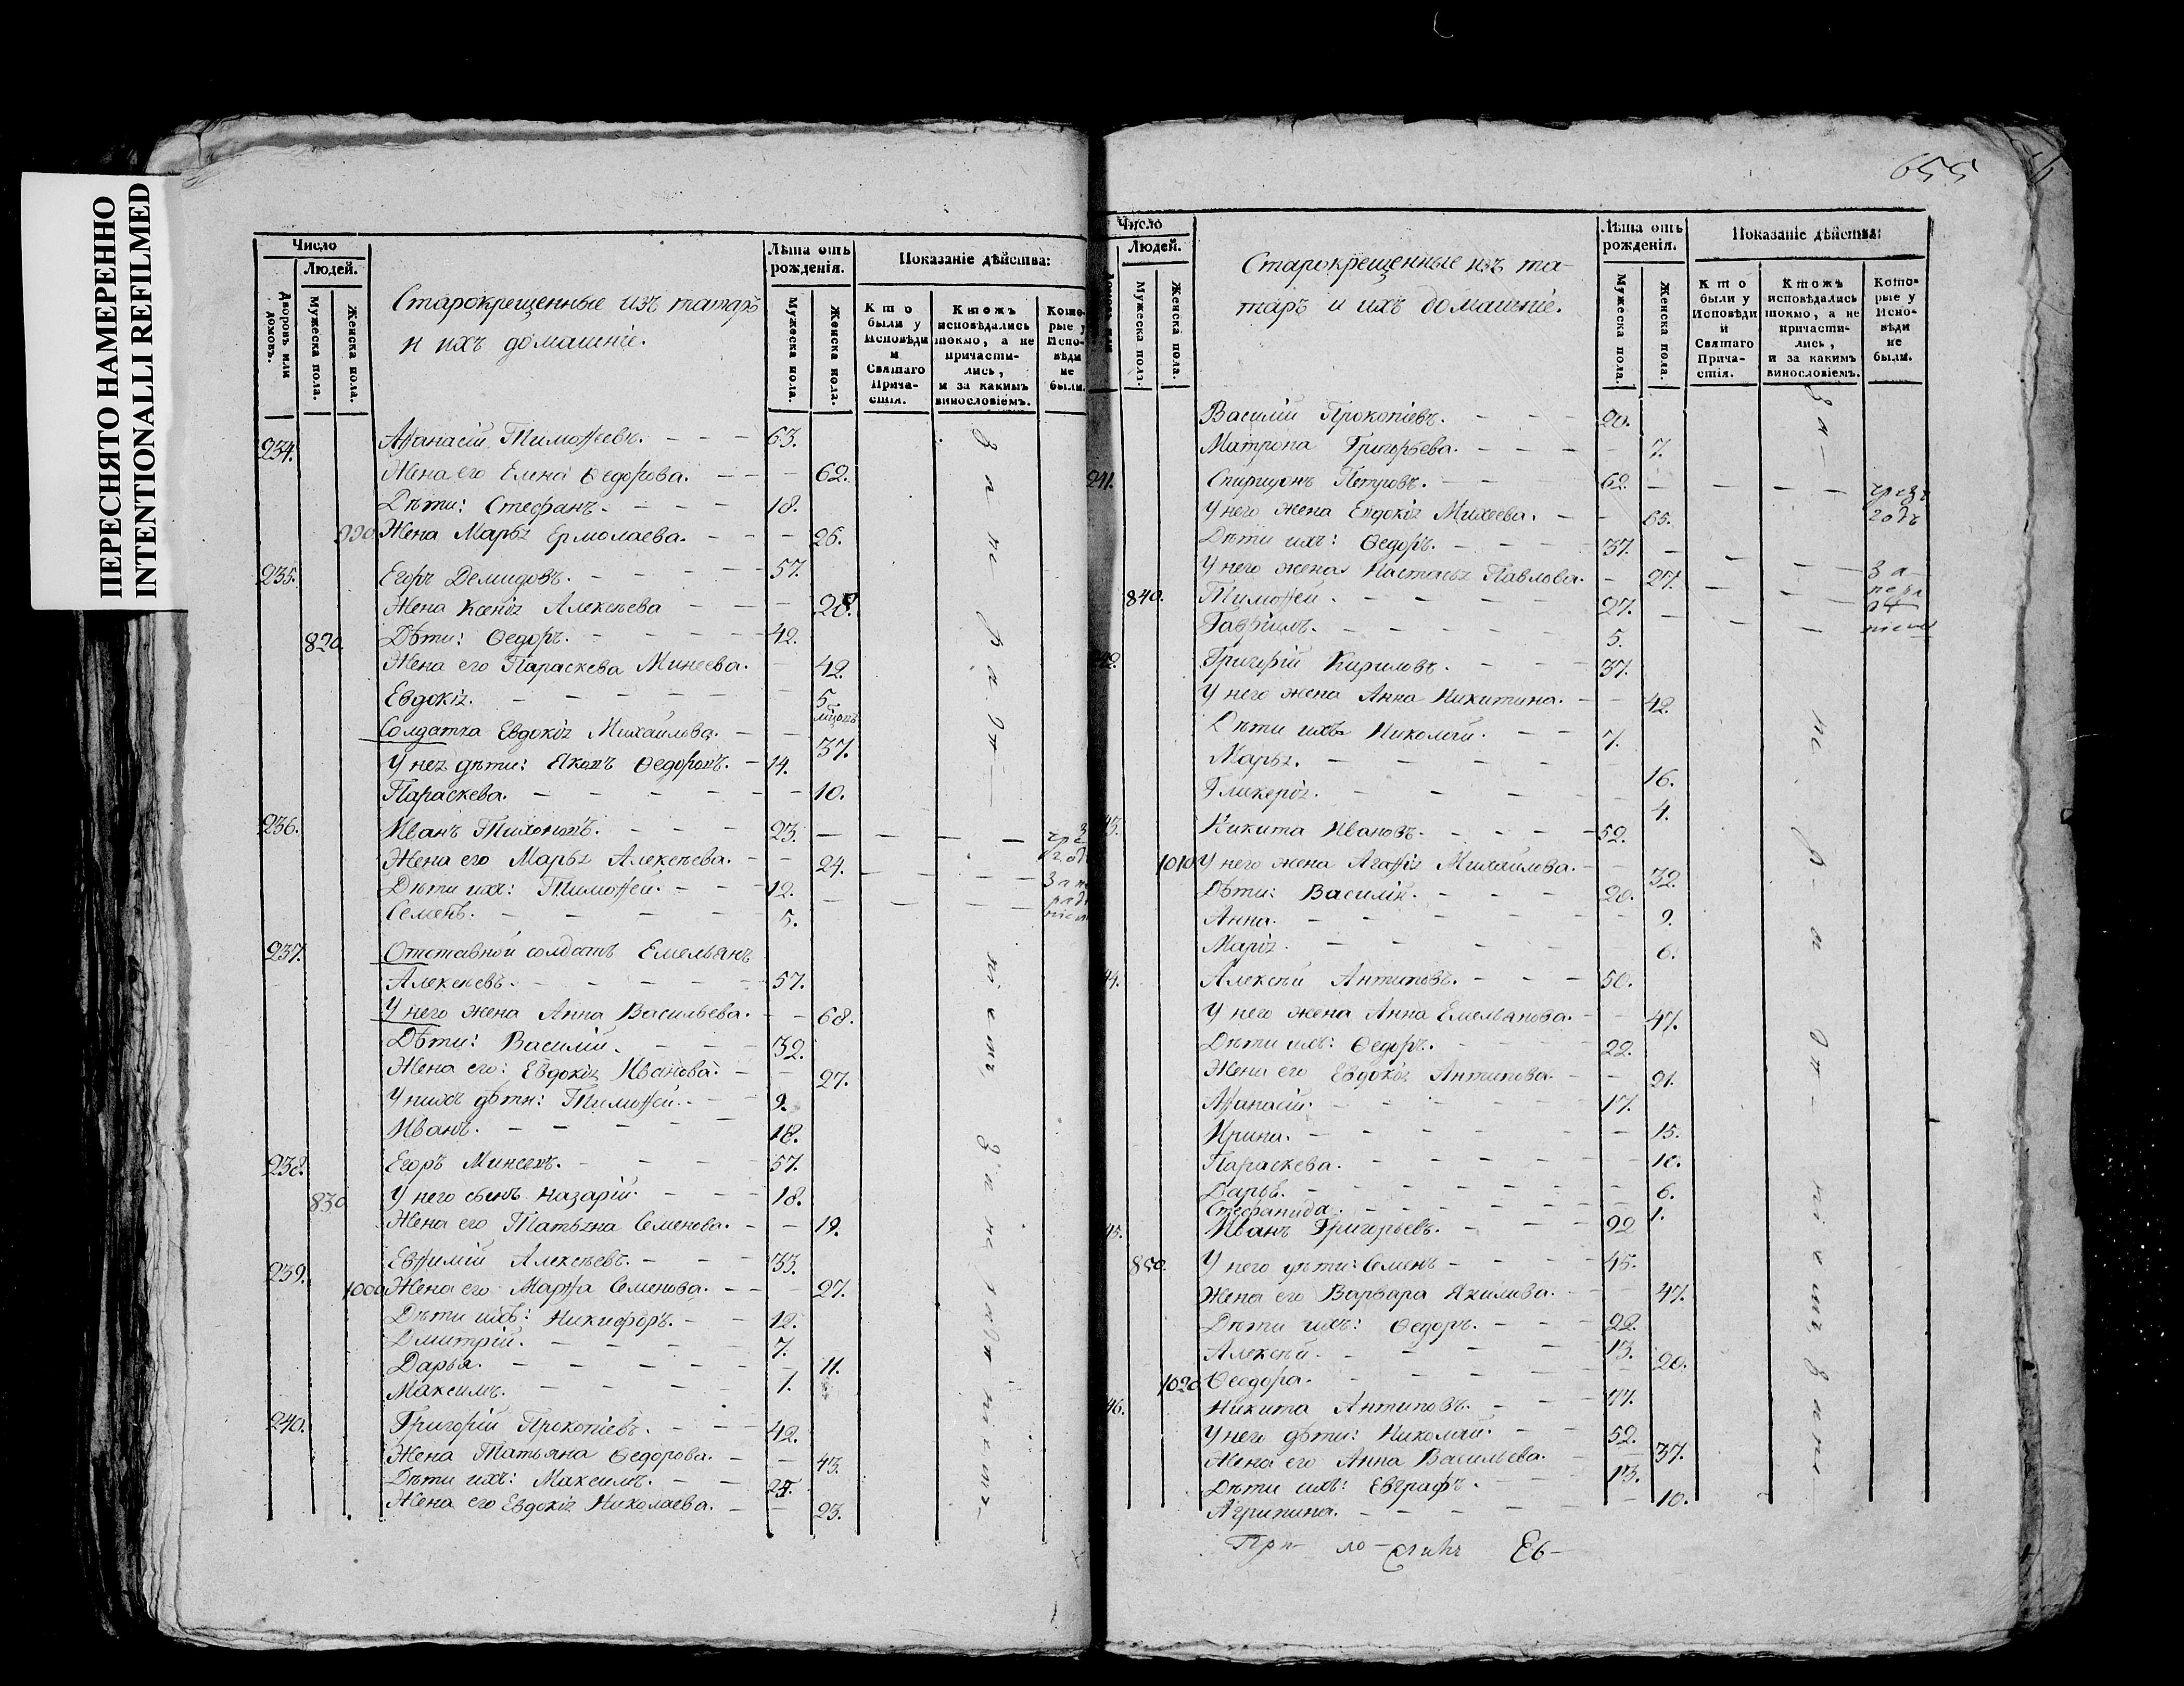 ПЕРЕСНЯТО НАМЕРЕННО
INTENTIONALLI REFILMED
Число
Людей.
Дворовъ или домовъ.
Мужеска пола.
Женска пола.
Старокрещенные изъ татаръ
и ихъ домашніе.
Лѣта отъ рожденія.
Мужеска пола.
Женска пола.
Показаніе дѣйства:
Кто были у Исповѣди и Святаго Прича-стія.
Ктожъ исповѣдались токмо, а не причасти-лись, и за какимъ винословіемъ.
Кото-рые у Испо-вѣди не были.
234. Аѳанасій Тимоѳеевъ. 63.
Жена его Елена Ѳедорова. 62.
Дѣти: Стефанъ. 18.
990. Жена Марья Ермолаева. 26.
235. Егоръ Демидовъ. 57.
Жена Ксенія Алексѣева 28.
820. Дѣти: Ѳедоръ. 42.
Жена его Параскева Минеева. 42.
Евдокія. 5
Солдатка Евдокія Михайлова. 37.
У нея дѣти: Яковъ Ѳедоровъ. 14.
Параскева. 10.
236. Иванъ Тихоновъ. 23.
Жена его Марья Алексѣева. 24.
Дѣти ихъ: Тимоѳей. 12.
Семенъ. 5.
237. Отставной солдатъ Емельянъ
Алексѣевъ. 57.
У него жена Анна Васильева. 68.
Дѣти: Василій. 32.
Жена его: Евдокія Иванова. 27.
У нихъ дѣти: Тимоѳей. 9.
Иванъ. 18.
238. Егоръ Минеевъ. 57.
830 У него сынъ Назарій. 18.
Жена его Татьяна Семенова. 19.
239. Евѳимій Алексѣевъ. 33.
1000 Жена его Марѳа Семенова. 27.
Дѣти ихъ: Никифоръ. 12.
Дмитрій. 7.
Дарья. 11.
Максимъ. 1.
240. Григорій Прокопіевъ. 42.
Жена Татьяна Ѳедорова. 43.
Дѣти ихъ: Максимъ. 25.
Жена его Евдокія Николаева. 23.
655
Число
Людей.
Мужеска пола.
Женска пола.
Старокрещенные изъ та-
таръ и ихъ домашніе.
Лѣта отъ рожденія.
Мужеска пола.
Женска пола.
Показаніе дѣйства:
Кто были у Исповѣди и Святаго Прича-стія.
Ктожъ исповѣдались токмо, а не причасти-лись, и за какимъ винословіемъ.
Кото-рые у Испо-вѣди не были.
Василій Прокопіевъ. 20.
Матрона Григорьева. 7.
241. Спиридонъ Петровъ. 62.
У него жена Евдокія Михеева. 65.
Дѣти ихъ: Ѳедоръ. 37.
У него жена Настасья Павлова. 27.
840. Тимоѳей. 27.
Гавріилъ. 5.
42. Григорій Кириловъ. 37.
У него жена Анна Никитина. 42.
Дѣти ихъ Николай. 7.
Марья. 16.
Гликерія. 4.
43. Никита Ивановъ. 52.
1010 У него жена Агаѳія Михайлова. 32.
Дѣти: Василій. 20.
Анна. 9.
Марія. 6.
44. Алексѣй Антиповъ. 50.
У него жена Анна Емельянова. 47.
Дѣти ихъ: Ѳедоръ. 22.
Жена его Евдокія Антипова. 21.
Аѳанасій. 17.
Ирина. 15.
Параскева. 10.
Дарья. 6.
Стефанида. 1.
45. Иванъ Григорьевъ. 92
850. У него дѣти: Семенъ 45.
Жена его Варвара Якимова. 47.
Дѣти ихъ: Ѳедоръ. 22.
Алексѣй. 13.
1020 Ѳеодора. 20.
46. Никита Антиповъ. 77.
У него дѣти: Николай. 52.
Жена его Анна Васильева. 37.
Дѣти ихъ: Евграфъ. 13.
Агрипина. 10.